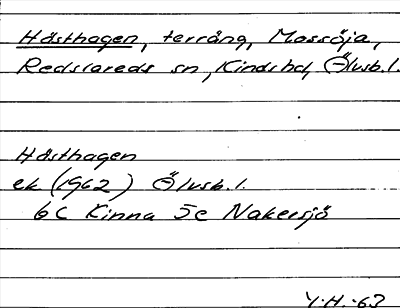 Hästhagen, terräng, Mossöja,
Redslareds sn, Kinds hd, Älvsb. l.
Hästhagen
ek (1962) Älvsb. l.
6C Kinna 5e Nakersjö
Y.H. -63